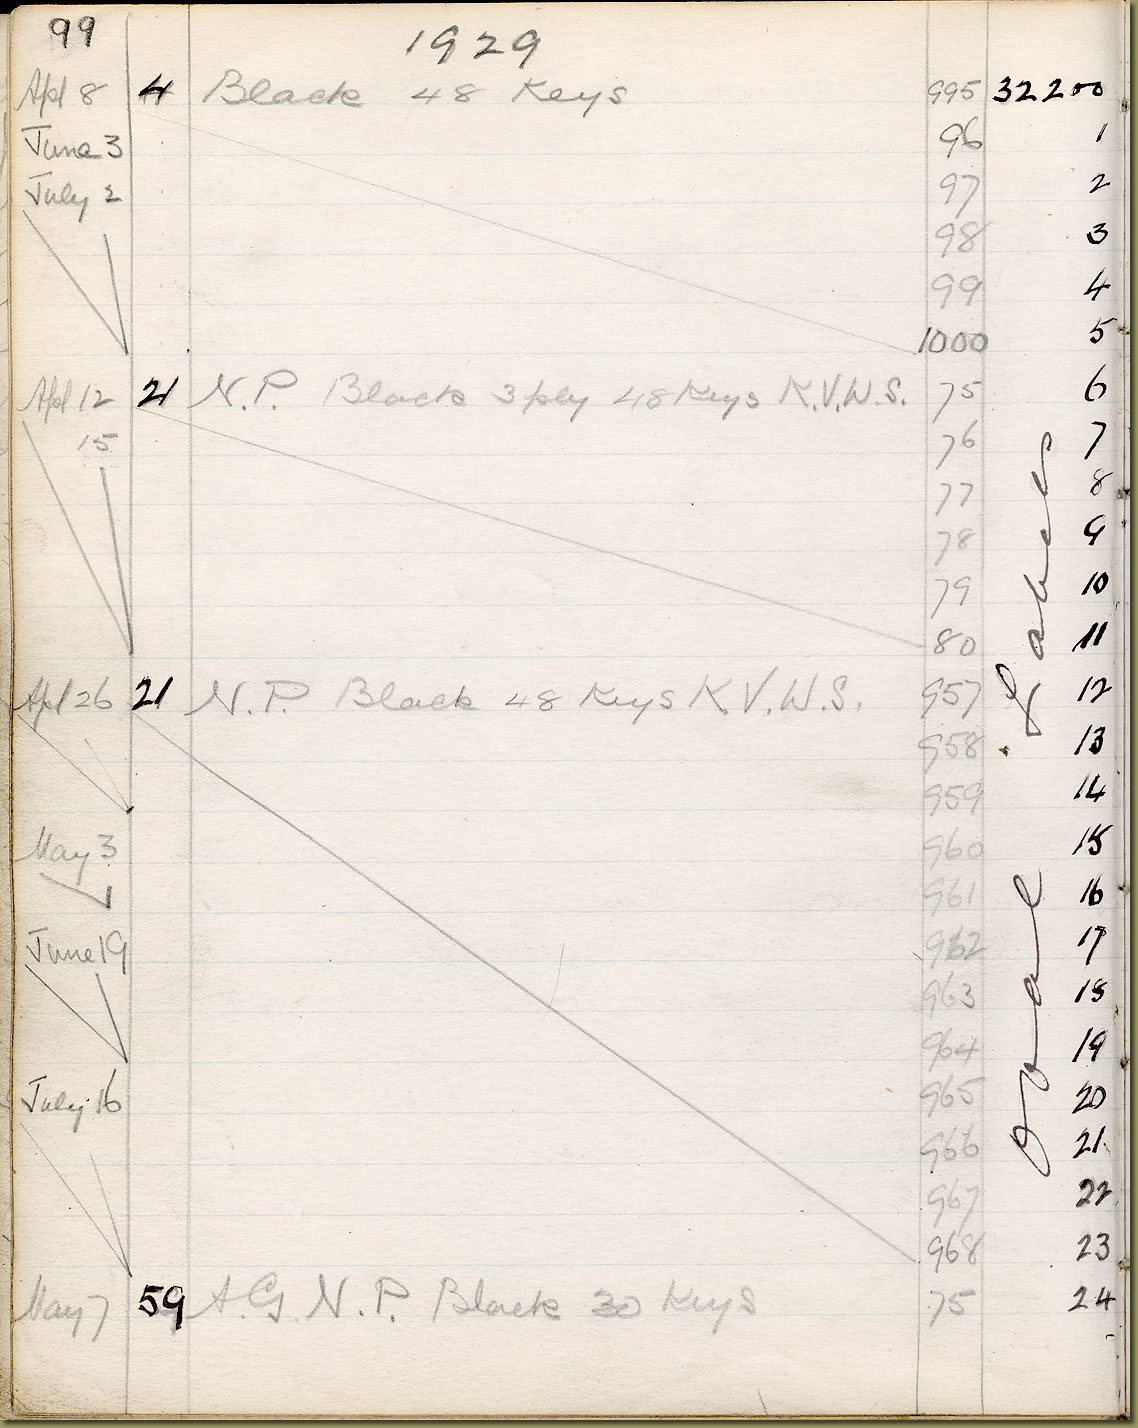 99
1929
Apl 8 4 Black 48 Keys 995 32200
June 3 96 1
July 2 97 2
98 3
99 4
1000 5
Apl 12 21 N.P. Black 3 ply 48 Keys K.V.W.S. 75 6
15 76 7
77 8
78 9
79 10
80 11
Apl 26 21 N.P. Black 48 Keys K.V.W.S. 957 12
958 13
959 14
May 3 960 15
961 16
June 19 962 17
963 18
964 19
July 16 965 20
966 21
967 22
968 23
May 7 59 A.G. N.P. Black 30 Keys 75 24
Oval Labels